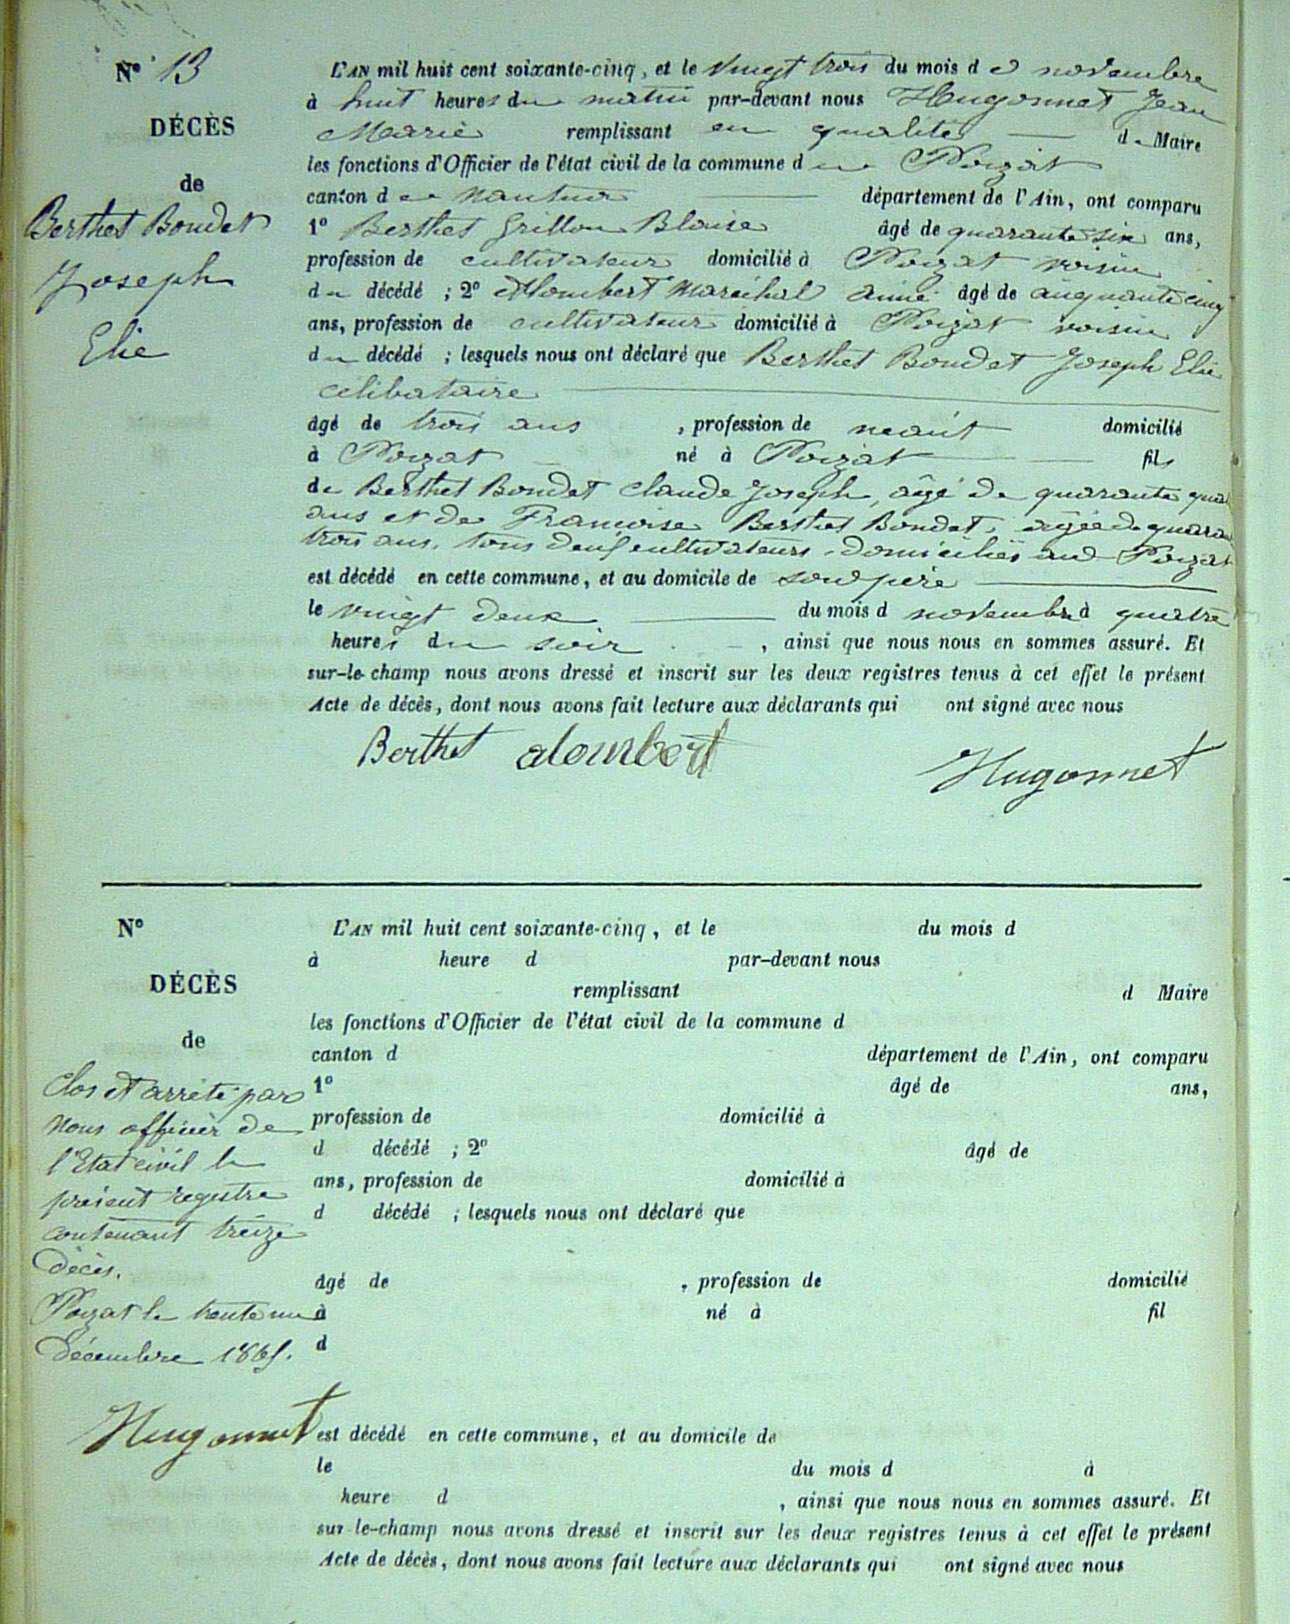 N° 13
DÉCÈS
de
Berthet Boudet
Joseph
Elie
L'AN mil huit cent soixante-cinq, et le vingt trois du mois de novembre
à huit heures du matin par-devant nous Hugonnet Jean
Marie remplissant en qualité de Maire
les fonctions d'Officier de l'état civil de la commune du Poizat
canton de nantua département de l'Ain, ont comparu
1° Berthet Grillon Blaise âgé de quarante six ans,
profession de cultivateur domicilié à Poizat voisin
du décédé ; 2° Alombert Maréchal aimé âgé de cinquante cinq
ans, profession de cultivateur domicilié à Poizat voisin
du décédé ; lesquels nous ont déclaré que Berthet Boudet Joseph Elie
célibataire
âgé de trois ans , profession de néant domicilié
à Poizat né à Poizat fils
de Berthet Boudet Claude Joseph, âgé de quarante
ans et de Francoise Berthet Boudet, âgée de
trois ans, tous deux cultivateurs domiciliés au Poizat
est décédé en cette commune, et au domicile de son père
le vingt deux du mois d novembre à quatre
heures du soir , ainsi que nous nous en sommes assuré. Et
sur-le-champ nous avons dressé et inscrit sur les deux registres tenus à cet effet le présent
Acte de décès, dont nous avons fait lecture aux déclarants qui ont signé avec nous
Berthet alombert Hugonnet
N°
DÉCÈS
de
Clos et arrêté par
nous officier de
l'Etat civil le
présent registre
contenant treize
décès.
Poizat le trente un
décembre 1865.
Hugonnet
L'AN mil huit cent soixante-cinq, et le du mois d
à heure d par-devant nous
remplissant d Maire
les fonctions d'Officier de l'état civil de la commune d
canton d département de l'Ain, ont comparu
1° âgé de ans,
profession de domicilié à
d décédé ; 2° âgé de
ans, profession de domicilié à
d décédé ; lesquels nous ont déclaré que
âgé de , profession de domicilié
à né à fil
d
est décédé en cette commune, et au domicile de
le du mois d à
heure d , ainsi que nous nous en sommes assuré. Et
sur-le-champ nous avons dressé et inscrit sur les deux registres tenus à cet effet le présent
Acte de décès, dont nous avons fait lecture aux déclarants qui ont signé avec nous